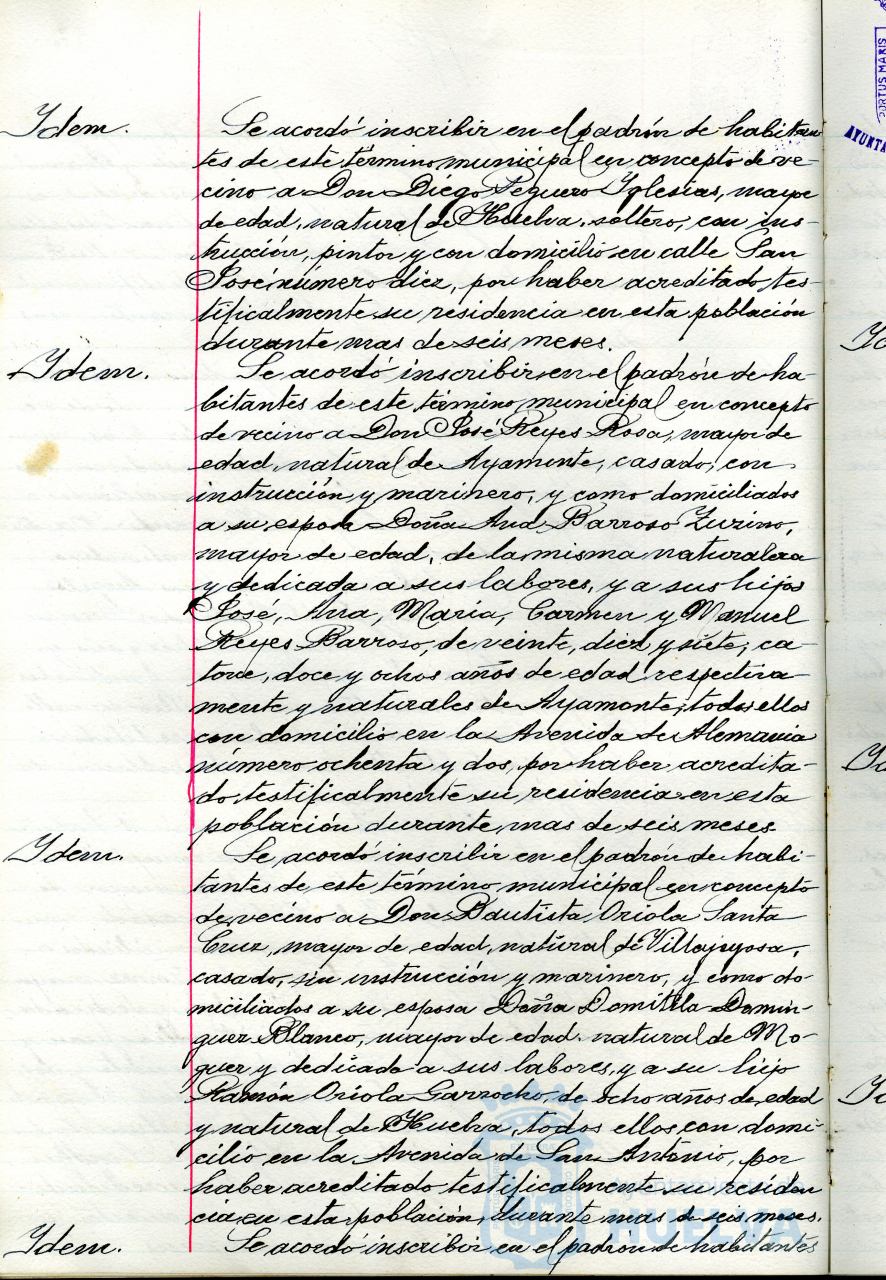 Ydem.
Se acordó inscribir en el padrón de habitan
tes de este término municipal en concepto de ve-
cino a Don Diego Peguero Yglesias, mayor
de edad, natural de Huelva, soltero, con ins-
trucción, pintor y con domicilio en calle San
José número diez, por haber acreditado tes-
tificalmente su residencia en esta población
durante mas de seis meses.
Ydem.
Se acordó inscribir en el padrón de ha-
bitantes de este término municipal en concepto
de vecino a Don José Reyes Rosa, mayor de
edad, natural de Ayamonte, casado, con
instrucción y marinero, y como domiciliados
a su esposa Doña Ana Barroso Zurino,
mayor de edad, de la misma naturaleza
y dedicada a sus labores, y a sus hijos
José, Ana, Maria, Carmen y Manuel
Reyes Barroso, de veinte, diez y siete, ca-
torce, doce y ochos años de edad respectiva-
mente y naturales de Ayamonte; todos ellos
con domicilio en la Avenida de Alemania
número ochenta y dos, por haber acredita-
do testificalmente su residencia en esta
población durante mas de seis meses.
Ydem.
Se acordó inscribir en el padrón de habi-
tantes de este término municipal en concepto
de vecino a Don Bautista Oriola Santa
Cruz, mayor de edad, natural de Villajoyosa,
casado, sin instrucción y marinero, y como do-
miciliados a su esposa Doña Domitila Domin-
guez Blanco, mayor de edad, natural de Mo-
guer y dedicada a sus labores, y a su hijo
Ramón Oriola Garrocho, de ocho años de edad
y natural de Huelva, todos ellos con domi-
cilio en la Avenida de San Antonio, por
haber acreditado testificalmente su residen
cia en esta población, durante mas de seis meses.
Ydem.
Se acordó inscribir en el padrón de habitantes
PORTUS MARIS
AYUNTA
Yd
Yd
Yd
Ayuntamiento de
HUELVA